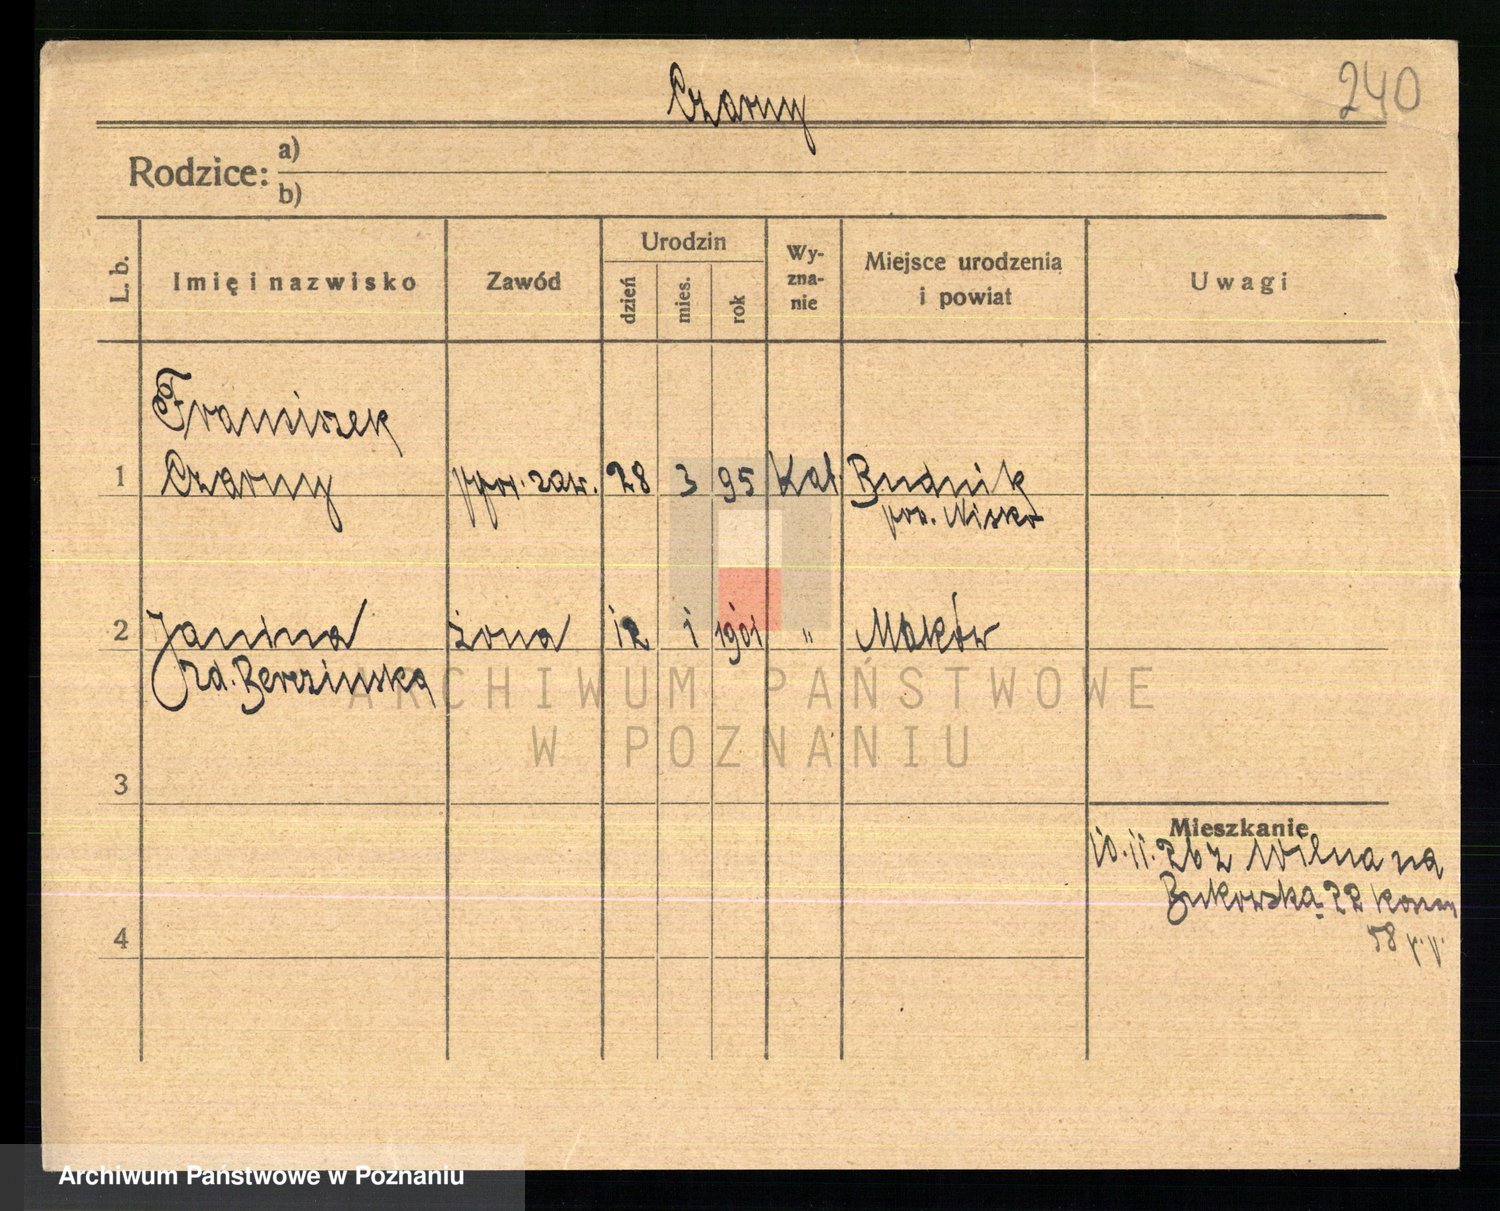 Czarny
240
Rodzice: a)
b)
L. b.
Imię i nazwisko
Zawód
Urodzin
dzień
mies.
rok
Wy-
zna-
nie
Miejsce urodzenia
i powiat
Uwagi
Franciszek
1 Czarny ppor. zaw. 28 3 95 Kat. Rudnik
pow. Nisko
2 Janina żona 12 1 1901 " Maków
zd. Berezińska
ARCHIWUM PAŃSTWOWE
W POZNANIU
3
Mieszkanie
10.11.26 z Wilna na
Bukowską 22 koszary
58 p.p.
4
Archiwum Państwowe w Poznaniu